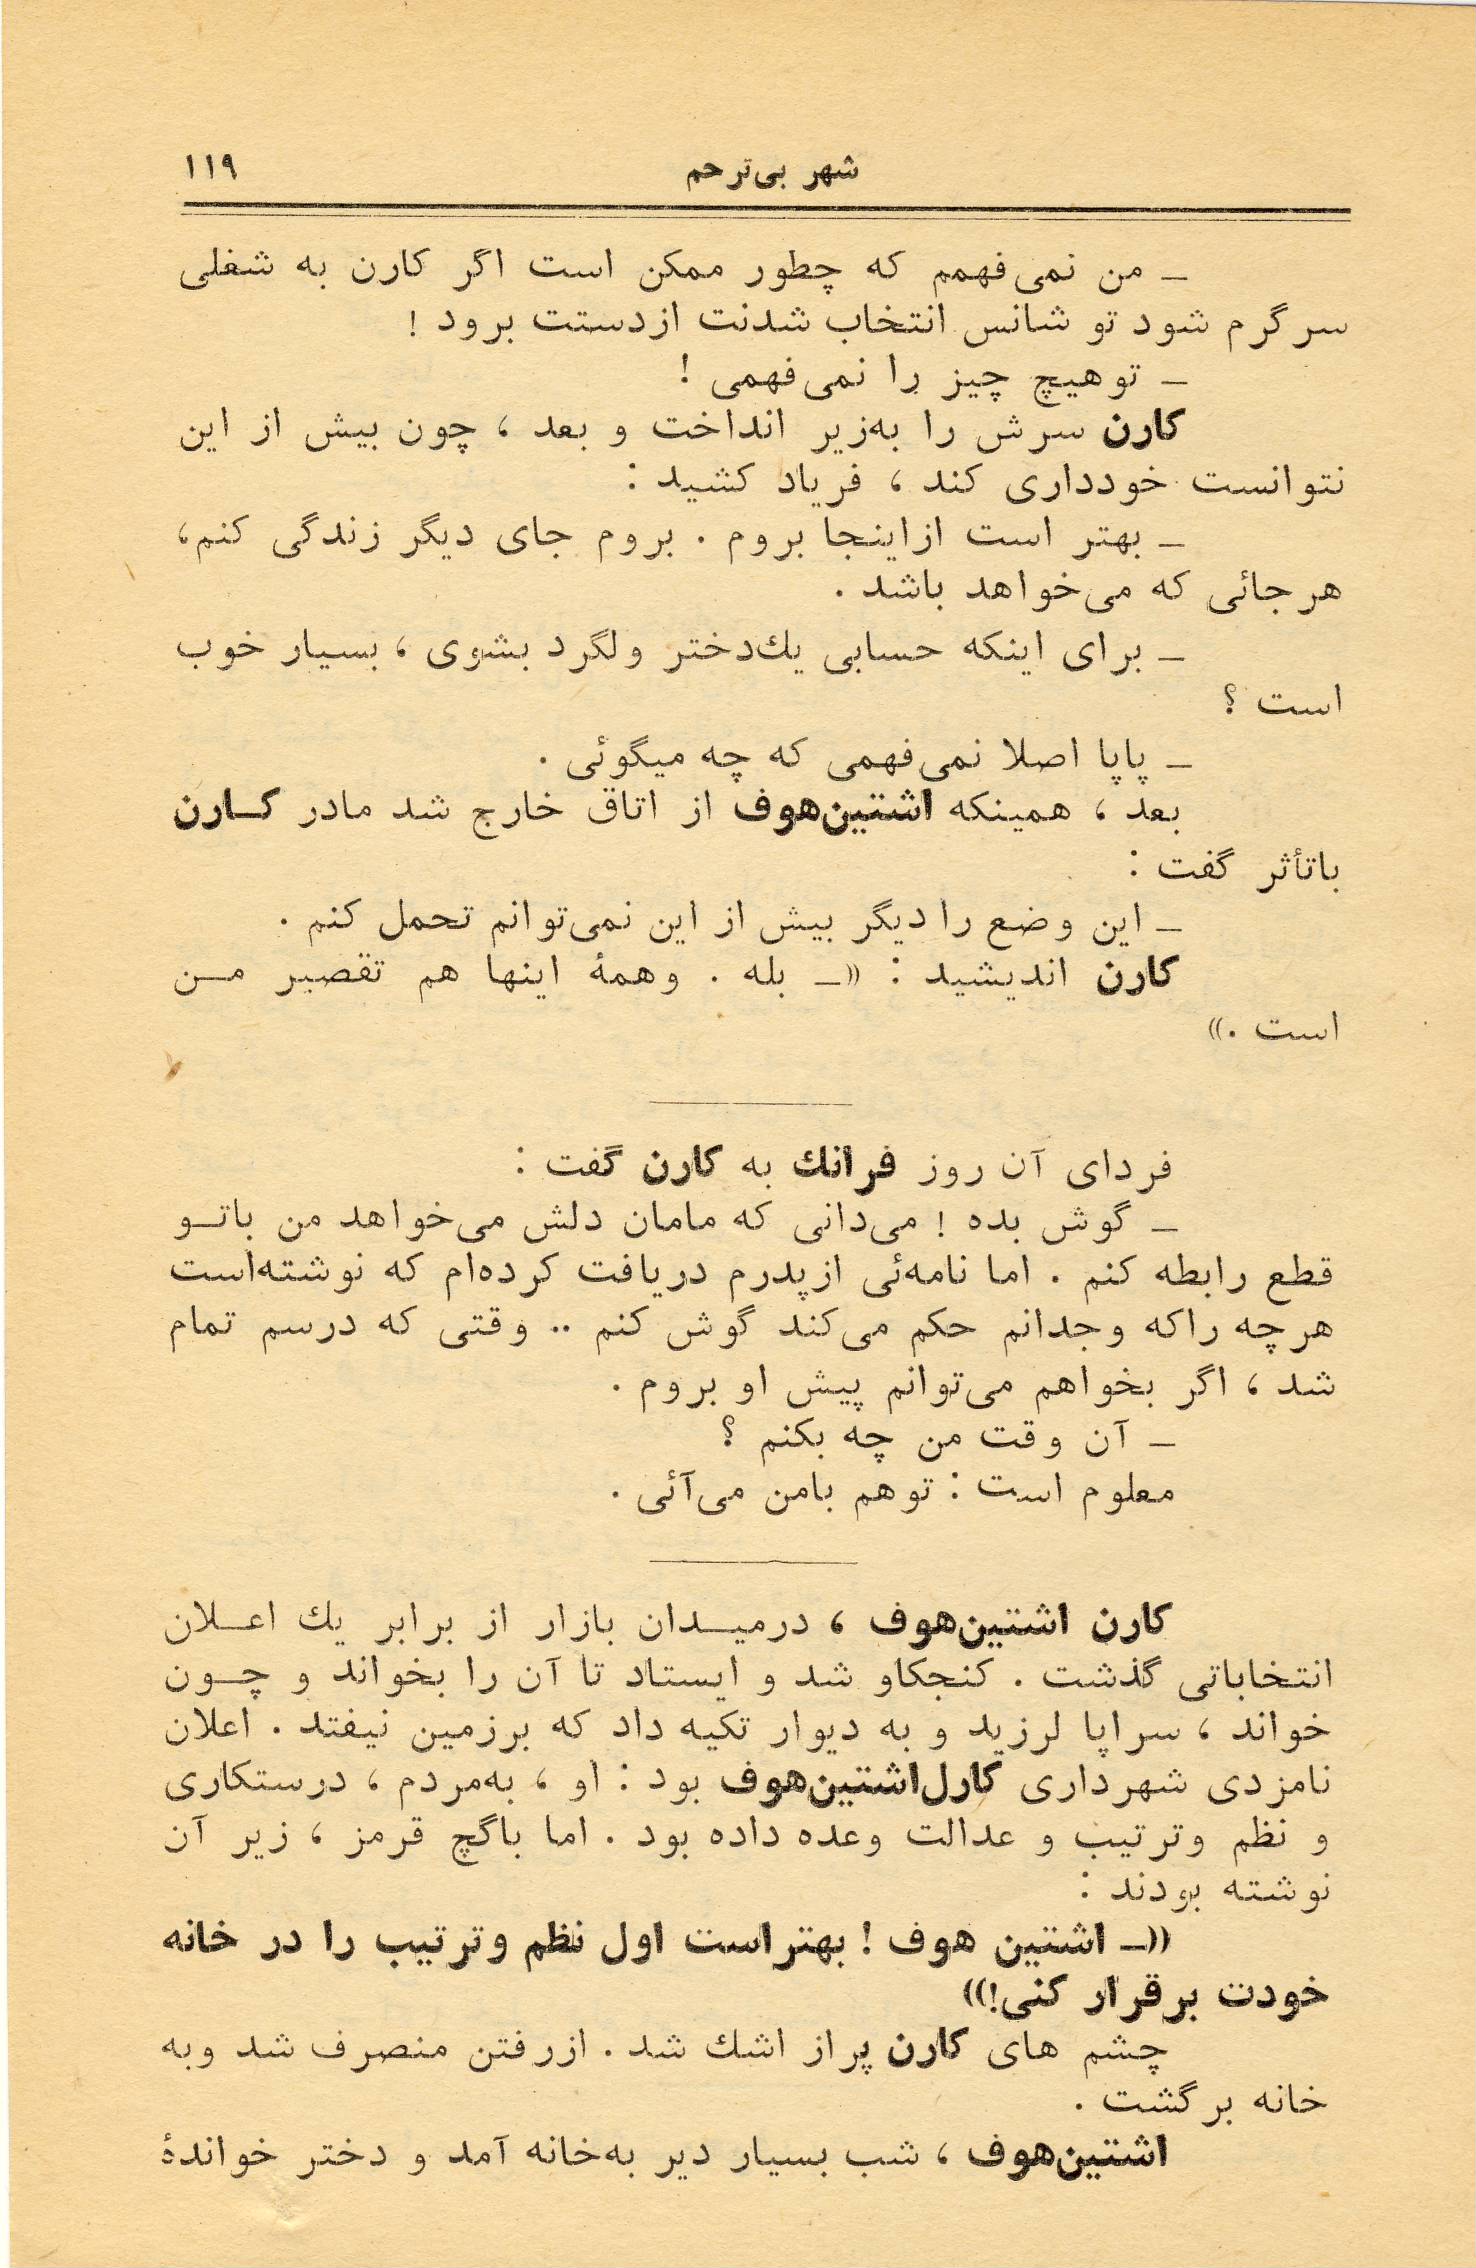 شهر بی‌ترحم ۱۱۹
ـ من نمی‌فهمم که چطور ممکن است اگر کارن به شغلی
سرگرم شود تو شانس انتخاب شدنت ازدستت برود !
ـ توهیچ چیز را نمی‌فهمی !
کارن سرش را به‌زیر انداخت و بعد ، چون بیش از این
نتوانست خودداری کند ، فریاد کشید :
ـ بهتر است ازاینجا بروم . بروم جای دیگر زندگی کنم،
هرجائی که می‌خواهد باشد .
ـ برای اینکه حسابی یك‌دختر ولگرد بشوی ، بسیار خوب
است ؟
ـ پاپا اصلا نمی‌فهمی که چه میگوئی .
بعد ، همینکه اشتین‌هوف از اتاق خارج شد مادر کـارن
باتأثر گفت :
ـ این وضع را دیگر بیش از این نمی‌توانم تحمل کنم .
کارن اندیشید : «ـ بله . وهمهٔ اینها هم تقصیر مـن
است .»
فردای آن روز فرانك به کارن گفت :
ـ گوش بده ! می‌دانی که مامان دلش می‌خواهد من باتـو
قطع رابطه کنم . اما نامه‌ئی ازپدرم دریافت کرده‌ام که نوشته‌است
هرچه راکه وجدانم حکم می‌کند گوش کنم .. وقتی که درسم تمام
شد ، اگر بخواهم می‌توانم پیش او بروم .
ـ آن وقت من چه بکنم ؟
معلوم است : توهم بامن می‌آئی .
کارن اشتین‌هوف ، درمیـدان بازار از برابر یك اعـلان
انتخاباتی گذشت . کنجکاو شد و ایستاد تا آن را بخواند و چـون
خواند ، سراپا لرزید و به دیوار تکیه داد که برزمین نیفتد . اعلان
نامزدی شهرداری کارل‌اشتین‌هوف بود : او ، به‌مردم ، درستکاری
و نظم وترتیب و عدالت وعده داده بود . اما باگچ قرمز ، زیر آن
نوشته بودند :
«ـ اشتین هوف ! بهتراست اول نظم وترتیب را در خانه
خودت برقرار کنی!»
چشم های کارن پراز اشك شد . ازرفتن منصرف شد وبه
خانه برگشت .
اشتین‌هوف ، شب بسیار دیر به‌خانه آمد و دختر خواندهٔ